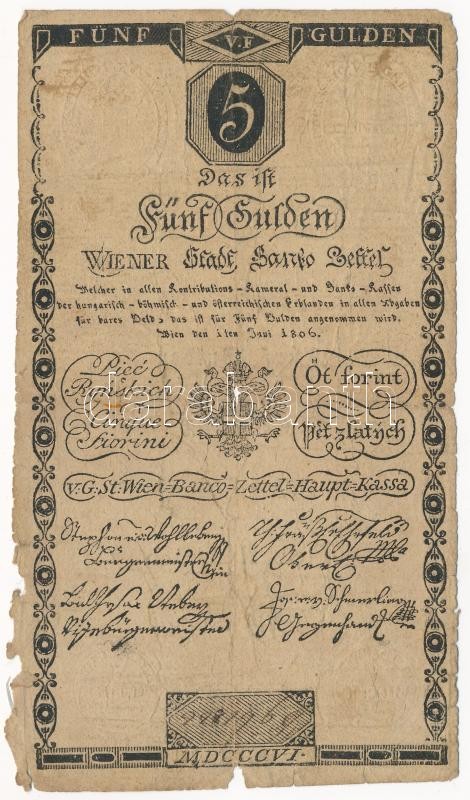 FÜNF V.F GULDEN
5
Das ist
Fünf Gulden
WIENER Stadt Banko Zettel
Welcher in allen Kontributions - Kameral - und Banko - Kassen
der hungarisch - böhmisch - und österreichischen Erblanden in allen Abgaben
für bares Geld, das ist für Fünf Gulden angenommen wird.
Wien den 1ten Juni 1806.
Pięć
Ryńskich
Cinque
Fiorini
Öt forint
Pět zlatých
v. G. St. Wien=Banco=Zettel=Haupt=Kassa
Stephan
Bürgermeister
Vizebürgermeister
Jos. v. Schmerling
Gegenhand
MDCCCVI.
darabanth